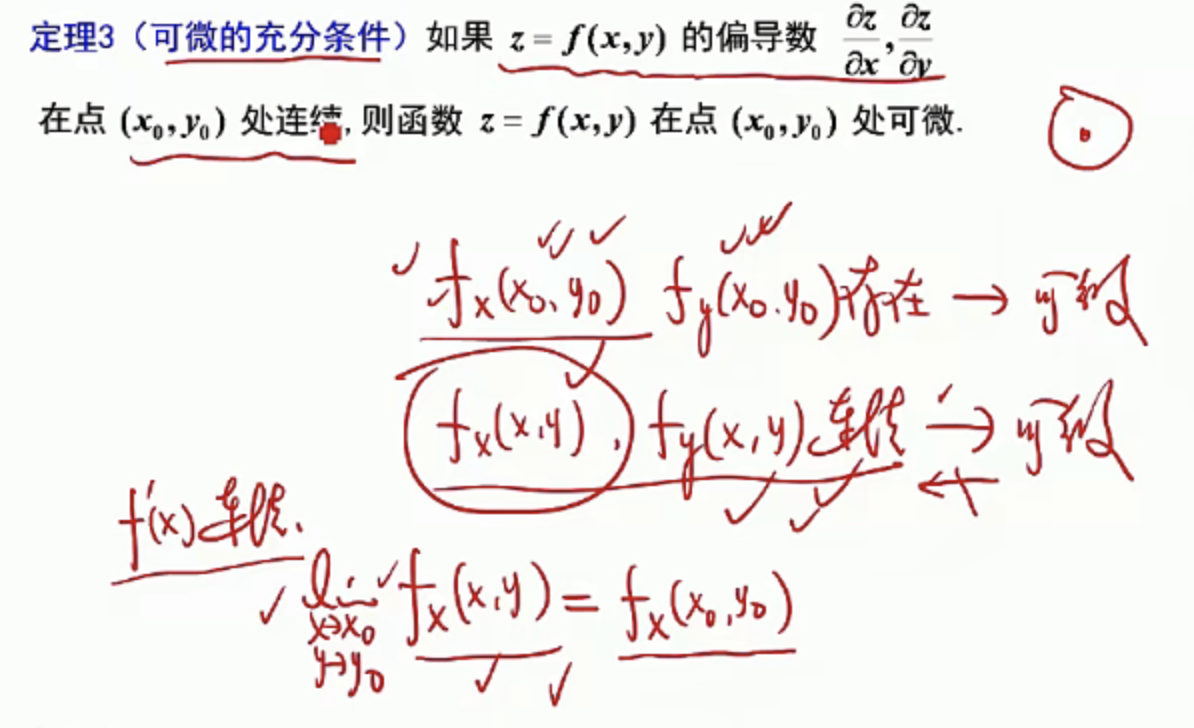 定理3（可微的充分条件）如果 z = f(x,y) 的偏导数 ∂z/∂x, ∂z/∂y
在点 (x₀,y₀) 处连续, 则函数 z = f(x,y) 在点 (x₀,y₀) 处可微.
fₓ(x₀,y₀) f_y(x₀.y₀)存在 → 可微
fₓ(x,y), f_y(x,y)连续 → 可微
f'(x)连续.
lim x→x₀ y→y₀ fₓ(x,y) = fₓ(x₀,y₀)